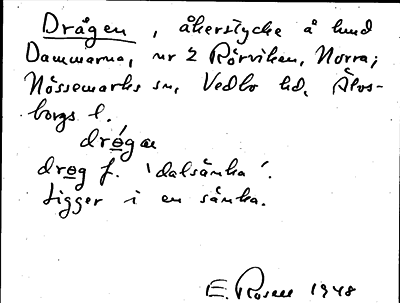 Drågen, åkerstycke å lund
Dammarna, nr 2 Rörviken, Norra,
Nössemarks sn, Vedbo hd, Älvs-
borgs l.
drǿgæ
drøg f. 'dalsänka'.
Ligger i en sänka.
E. Rosell 1948